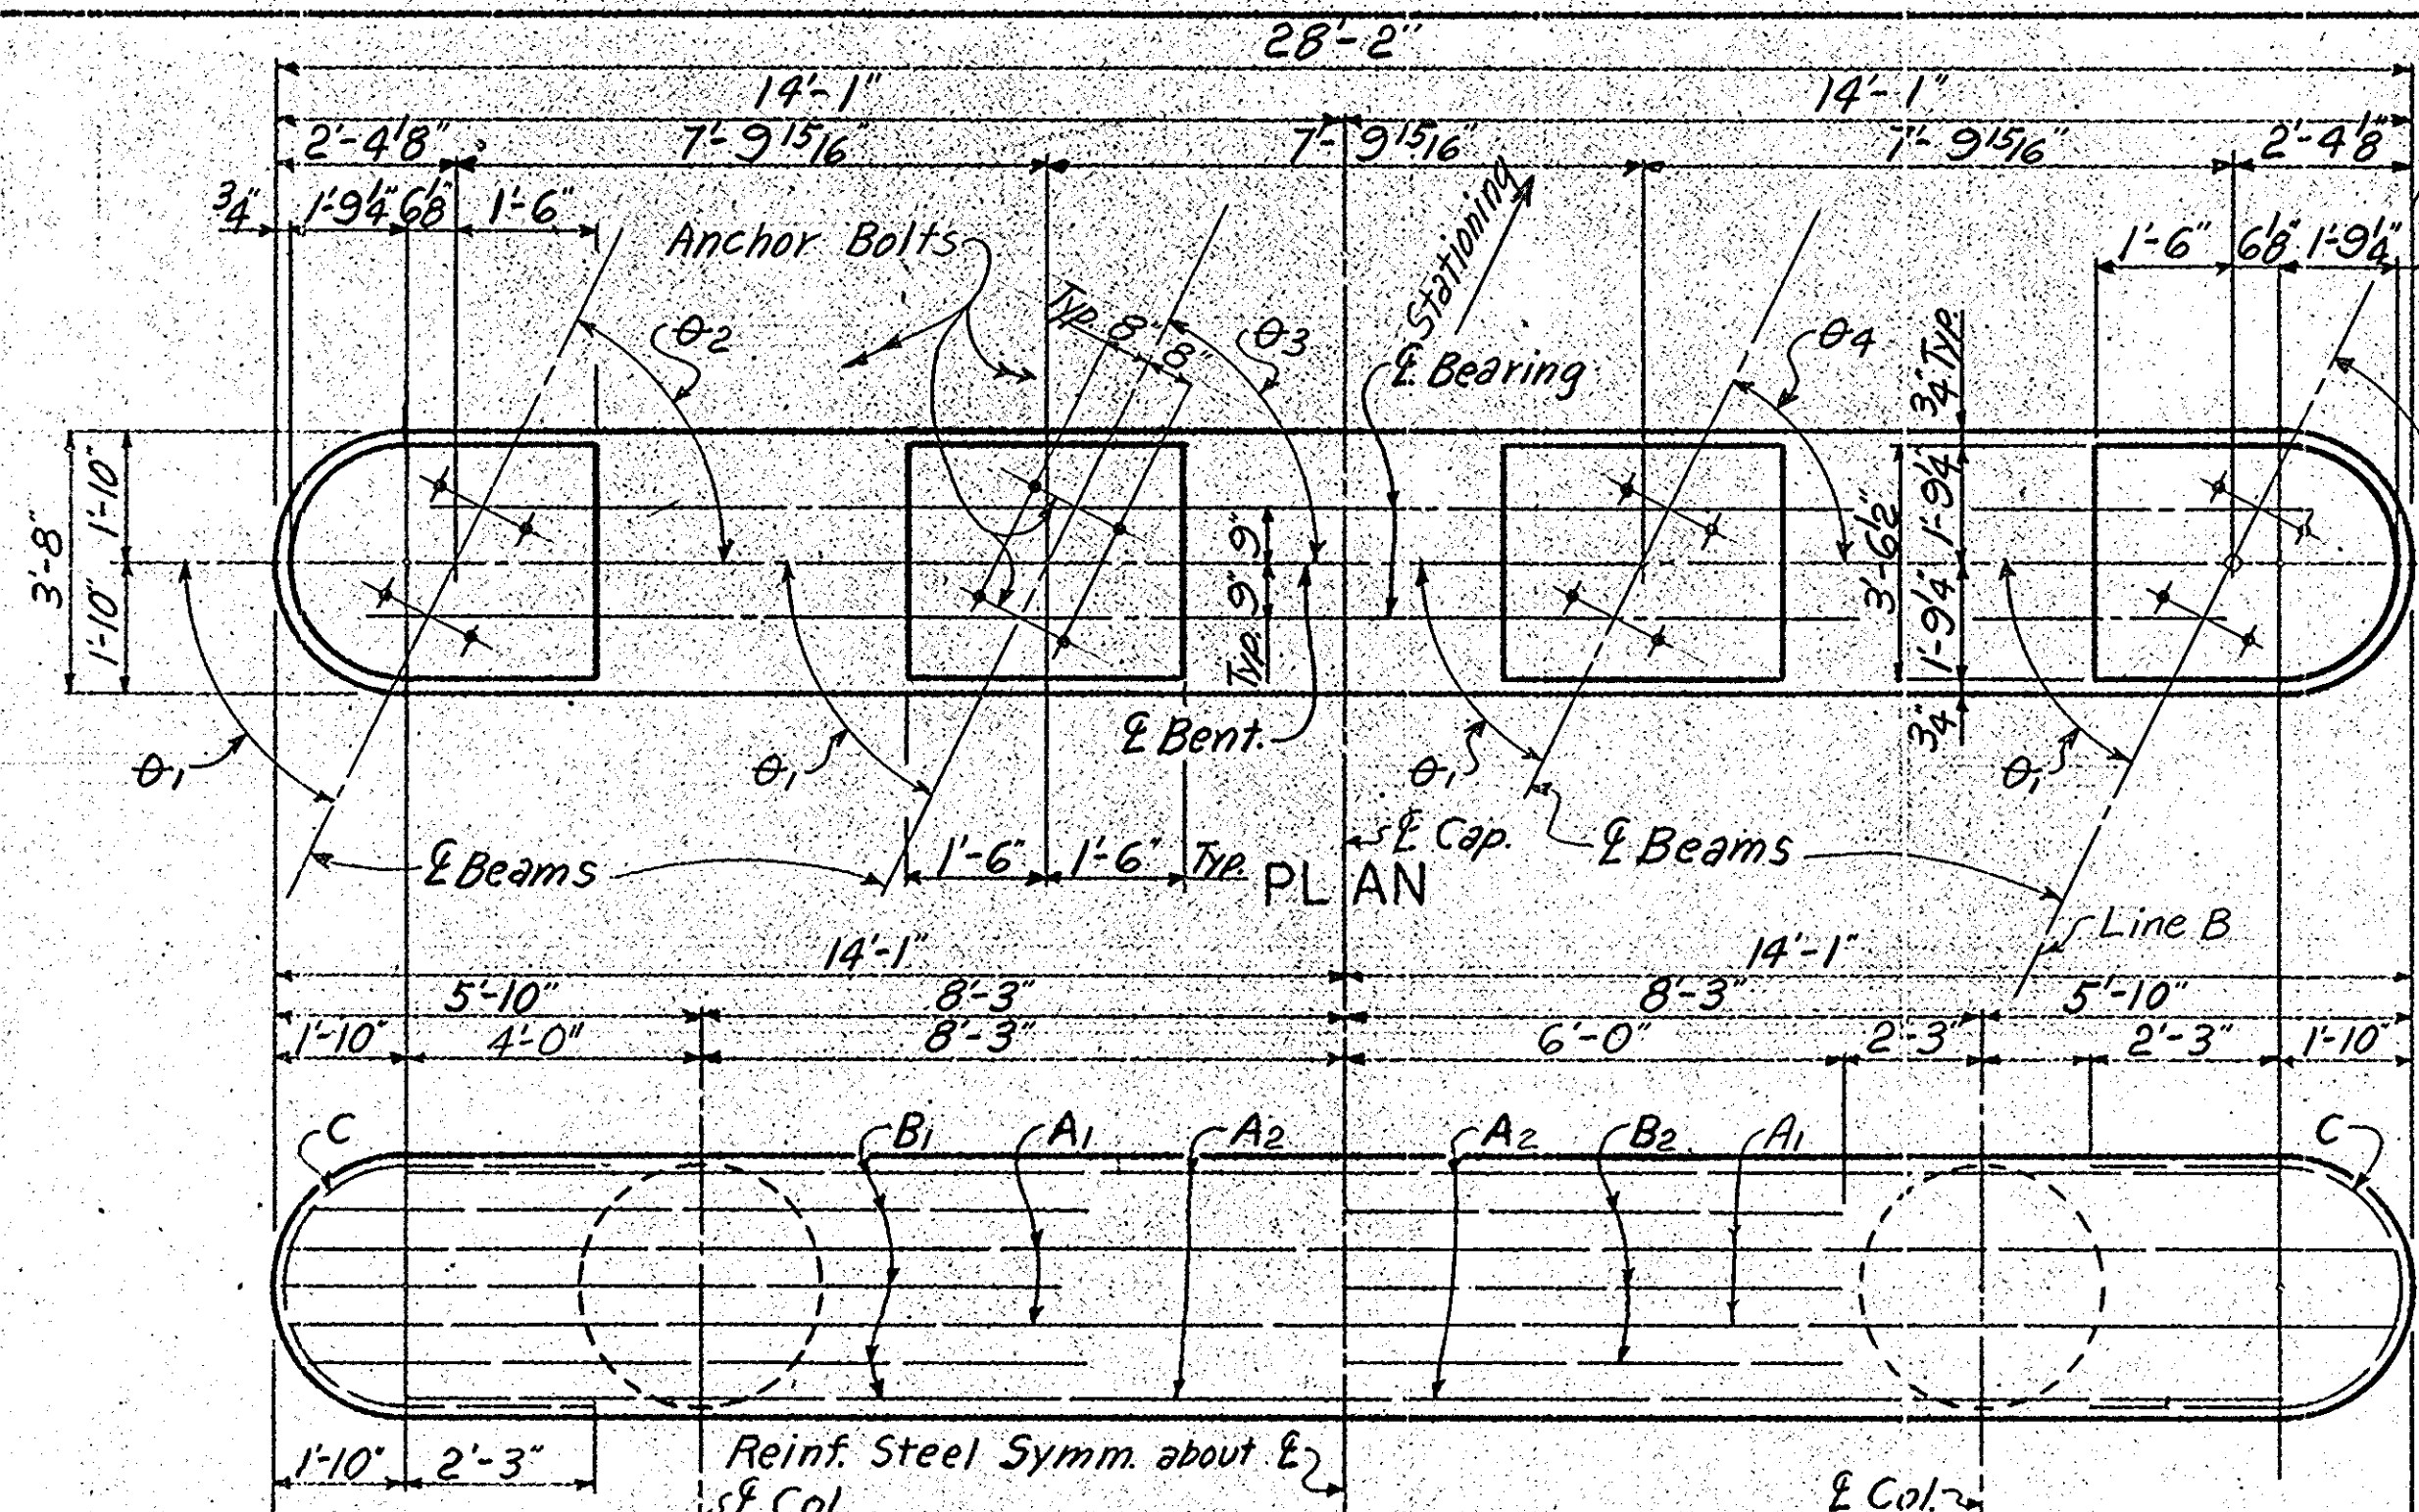 28'-2"
14'-1" 14'-1"
2'-4 1/8" 7'-9 15/16" 7'-9 15/16" 7'-9 15/16" 2'-4 1/8"
3/4" 1'-9 1/4" 6 1/8" 1'-6" 1'-6" 6 1/8" 1'-9 1/4"
Anchor Bolts
Stationing
Typ. 8" 8"
θ2 θ3 θ4
℄ Bearing
3/4" Typ.
3'-8" 1'-10" 1'-10"
Typ. 9" 9"
3'-6 1/2" 1'-9 1/4" 1'-9 1/4"
3/4"
℄ Bent.
θ1 θ1 θ1 θ1
℄ Beams 1'-6" 1'-6" Typ. ℄ Cap. ℄ Beams
PLAN
Line B
14'-1" 14'-1"
5'-10" 8'-3" 8'-3" 5'-10"
1'-10" 4'-0" 8'-3" 6'-0" 2'-3" 2'-3" 1'-10"
C B1 A1 A2 A2 B2 A1 C
1'-10" 2'-3" Reinf. Steel Symm. about ℄
℄ Col. ℄ Col.